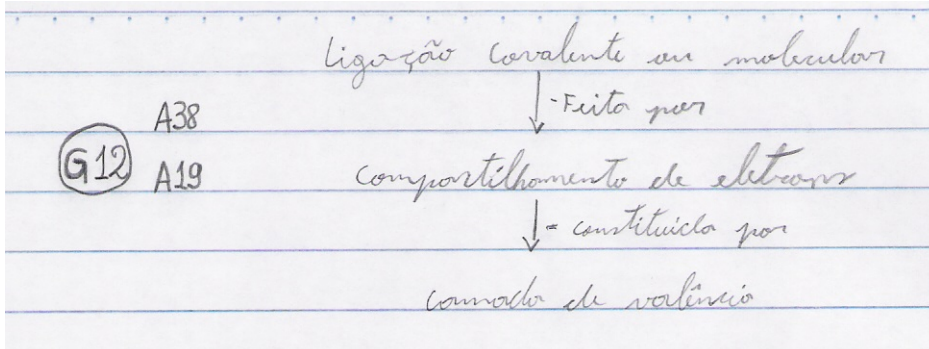 Ligação Covalente ou molecular
- Feita por
A38
G12
A19
Compartilhamento de eletrons
- constituida por
camada de valência